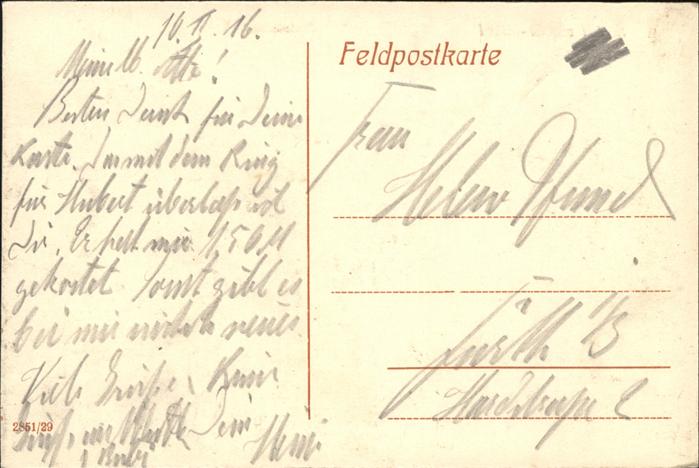 10. II. 16.
Meine lb.
Besten Dank für Deine
Karte. Das mit dem Ring
für Hubert überlasse ich
Dir. Er hat mir 1 50 M
gekostet. Sonst gibt es
bei mir nichts neues.
Viele Grüße,
Dein
2851/29
Feldpostkarte
Frau
Helene Pfund
Fürth i/B